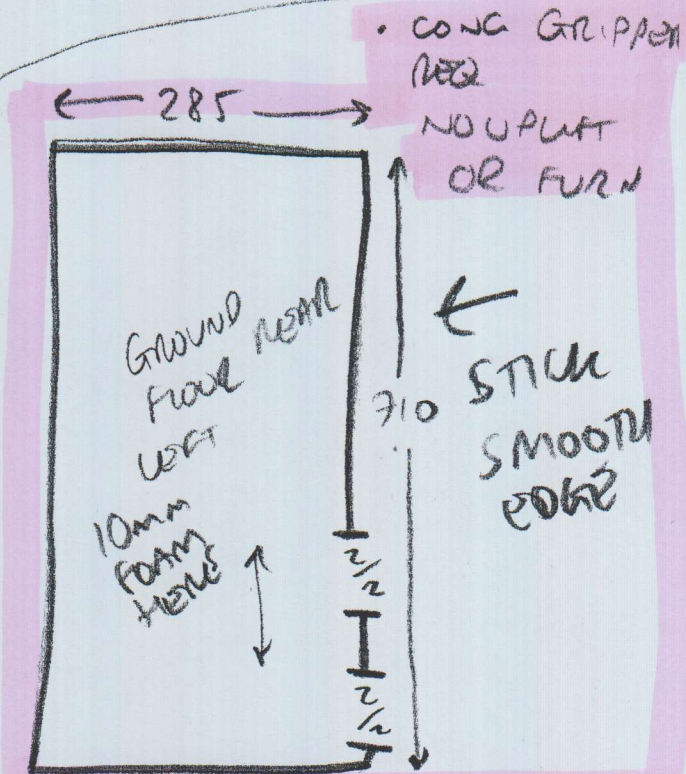 • CONC GRIPPER
REQ
NO UPLIFT
OR FURN
285
GROUND
FLOOR REAR
LEFT
10mm
FOAM
HERE
710
STICK
SMOOTH
EDGE
2/2
2/2